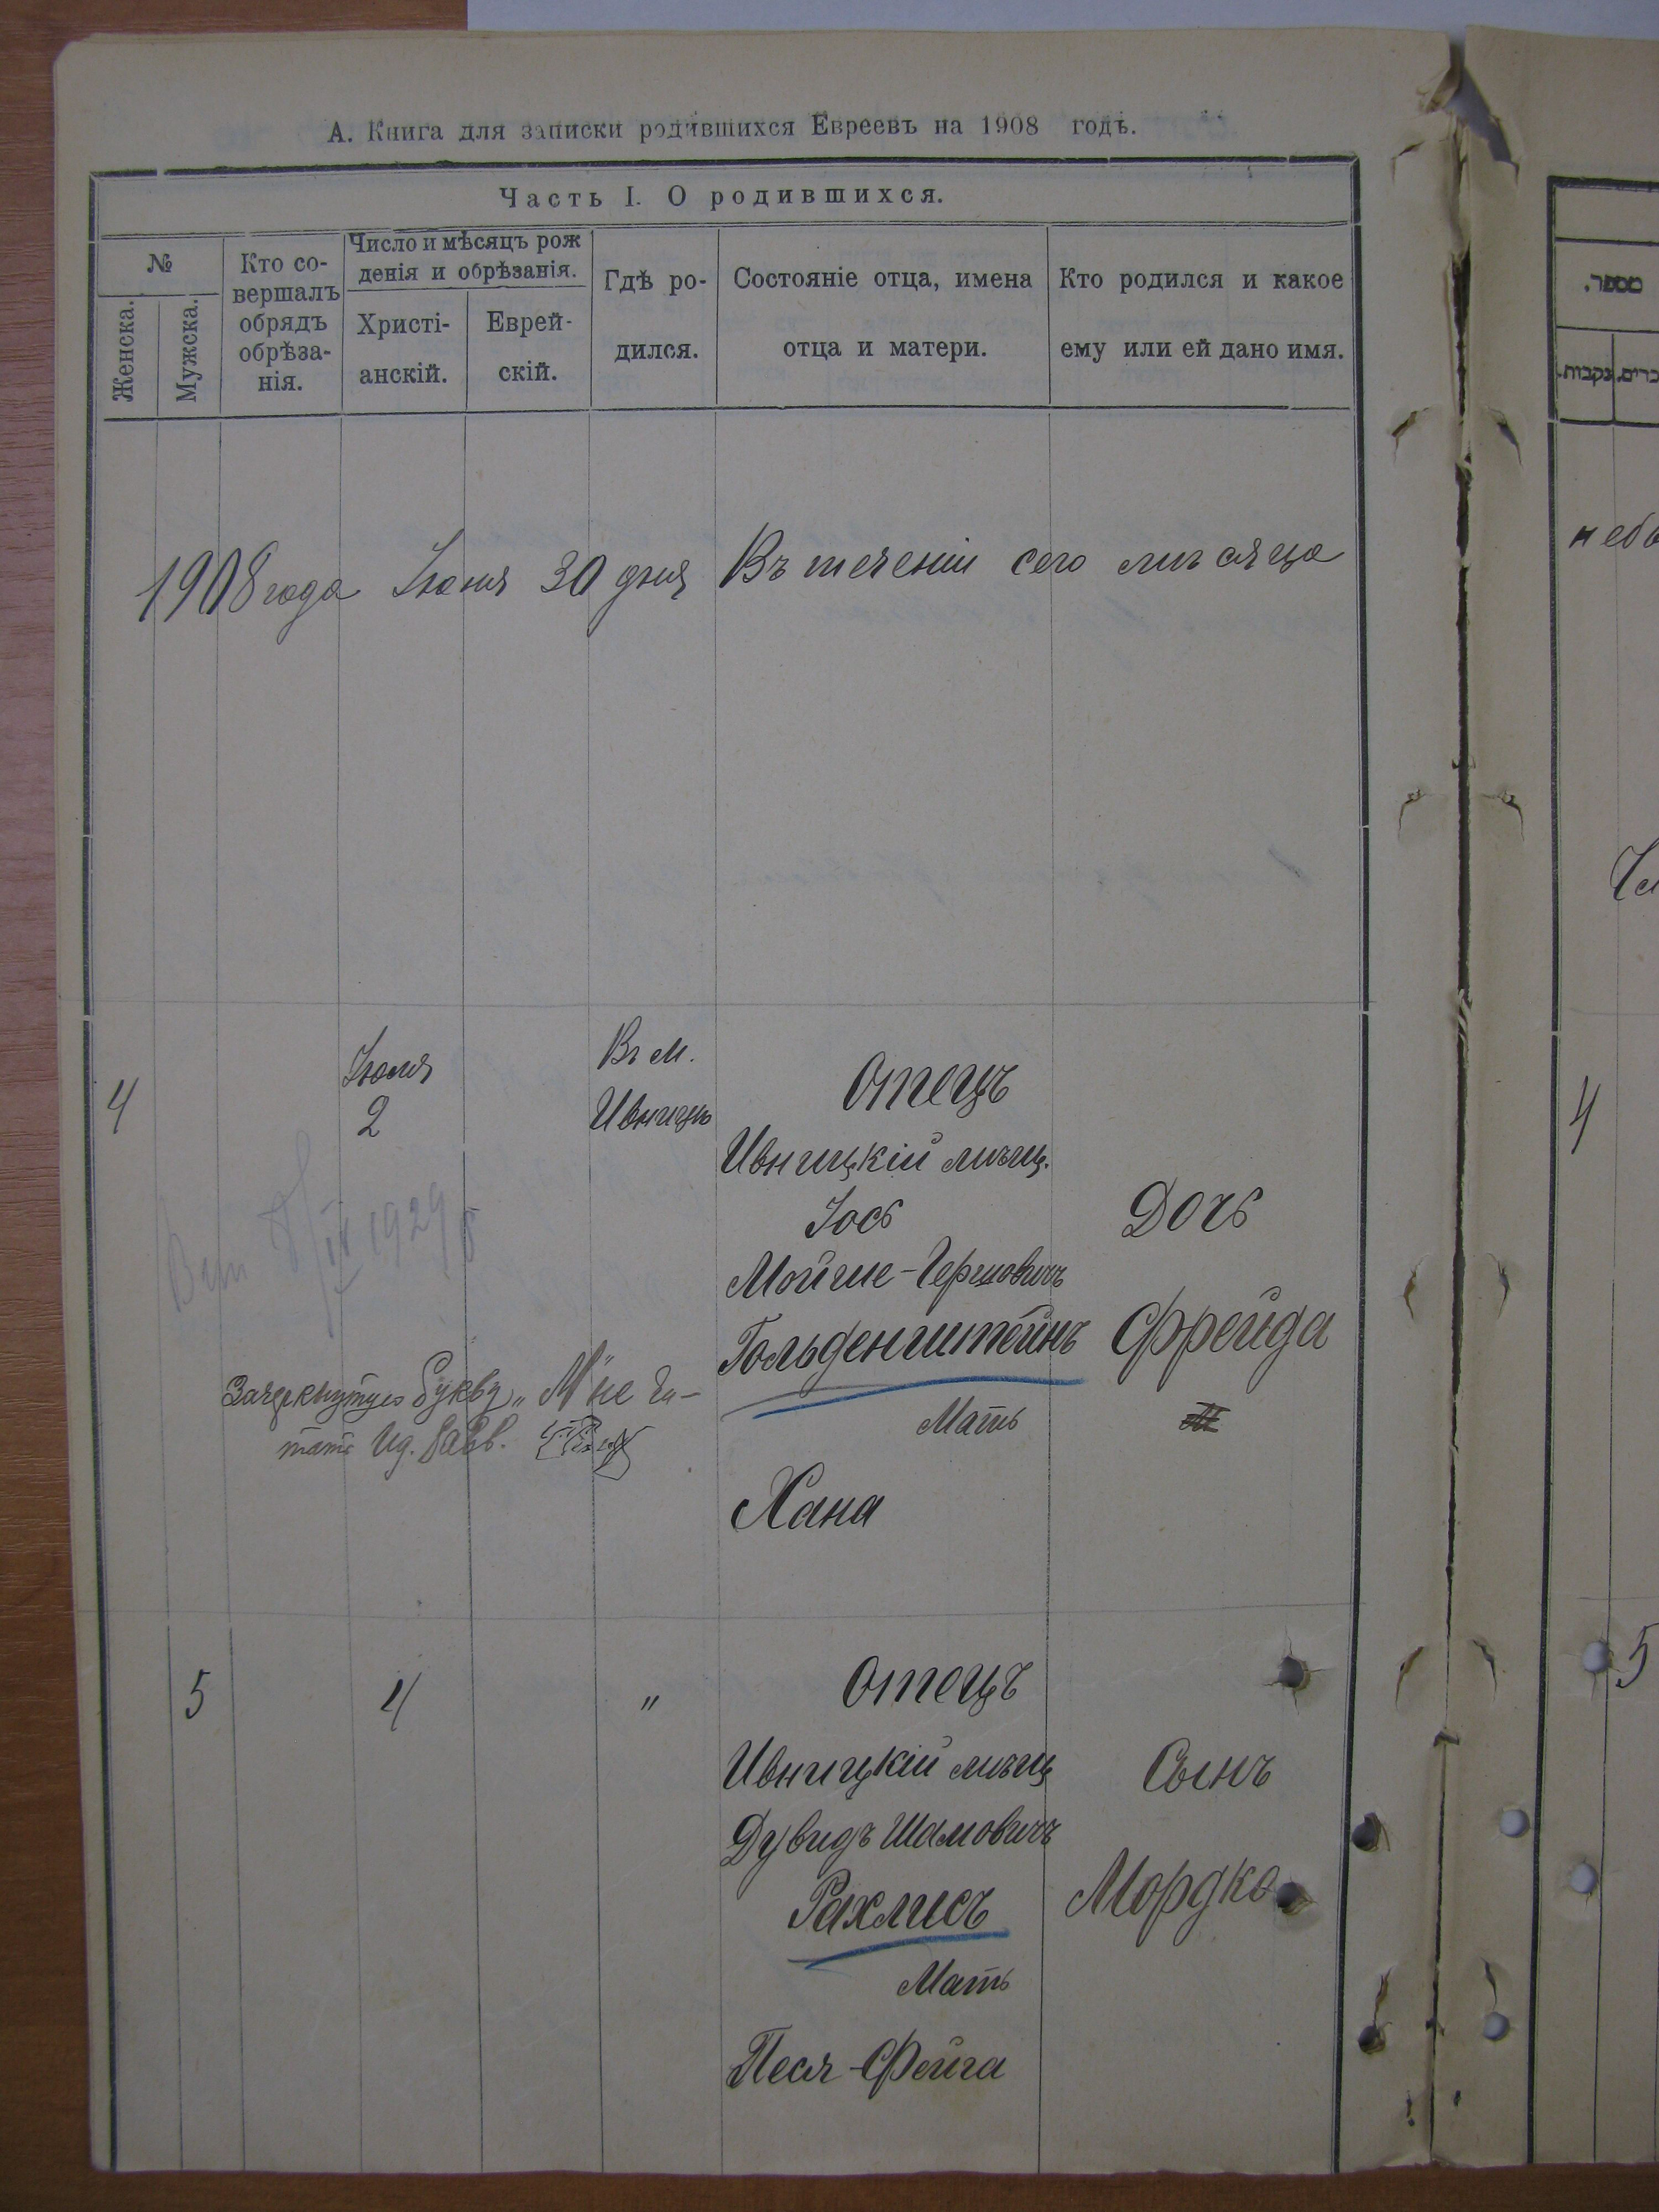 А. Книга для записки родившихся Евреевъ на 1908 годъ.
Часть I. О родившихся.
№
Женска.
Мужска.
Кто со-
вершалъ
обрядъ
обрѣза-
нія.
Число и мѣсяцъ рож
денія и обрѣзанія.
Христі-
анскій.
Еврей-
скій.
Гдѣ ро-
дился.
Состояніе отца, имена
отца и матери.
Кто родился и какое
ему или ей дано имя.
מספר.
נקבות.
1908 года Іюня 30 дня Въ теченіи сего мѣсяца
4
Іюля
2
Въ м.
Ивницѣ
Отецъ
Ивницкій мѣщ.
Іось
Мойше-Гершовичъ
Гольденштейнъ
Мать
Хана
Дочь
Фрейда
М
1929
Зачеркнутую букву „М“ не чи-
тать Ид. Равв.
5
4
"
Отецъ
Ивницкій мѣщ
Дувидъ Шамовичъ
Рахлисъ
Мать
Песя-Фейга
Сынъ
Мордко
4
5